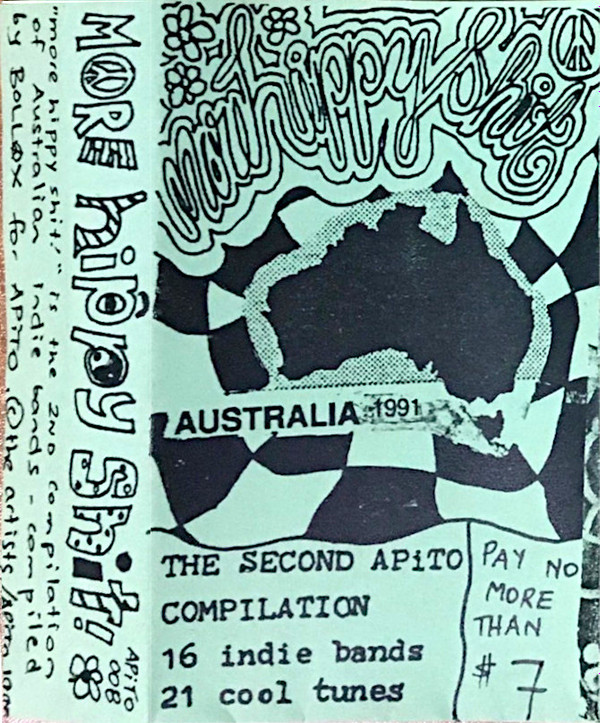 MORE hippy Shit!
APiTO
008
"more hippy shit!" is the 2ND compilation
of Australian indie bands - compiled
by BOLLOX for APiTO @ the artists/apito
more hippy shit
AUSTRALIA 1991
THE SECOND APiTO
COMPILATION
16 indie bands
21 cool tunes
PAY NO
MORE
THAN
$7